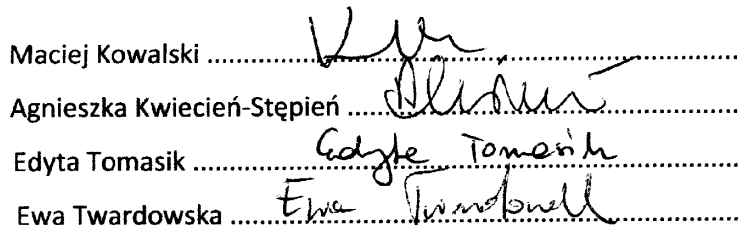 Maciej Kowalski ........................................
Agnieszka Kwiecień-Stępień ........................................
Edyta Tomasik ........................................ Edyta Tomasik
Ewa Twardowska ........................................ Ewa